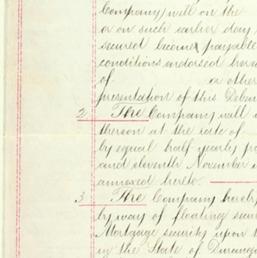 Company) will on the
or on such earlier day
secured become payable
conditions endorsed here
of or other
presentation of this Deben
2. The Company will
thereon at the rate of
by equal half yearly p
and eleventh November
annexed hereto.
3. The Company hereby
by way of floating secu
Mortgage security upon
in the State of Durango